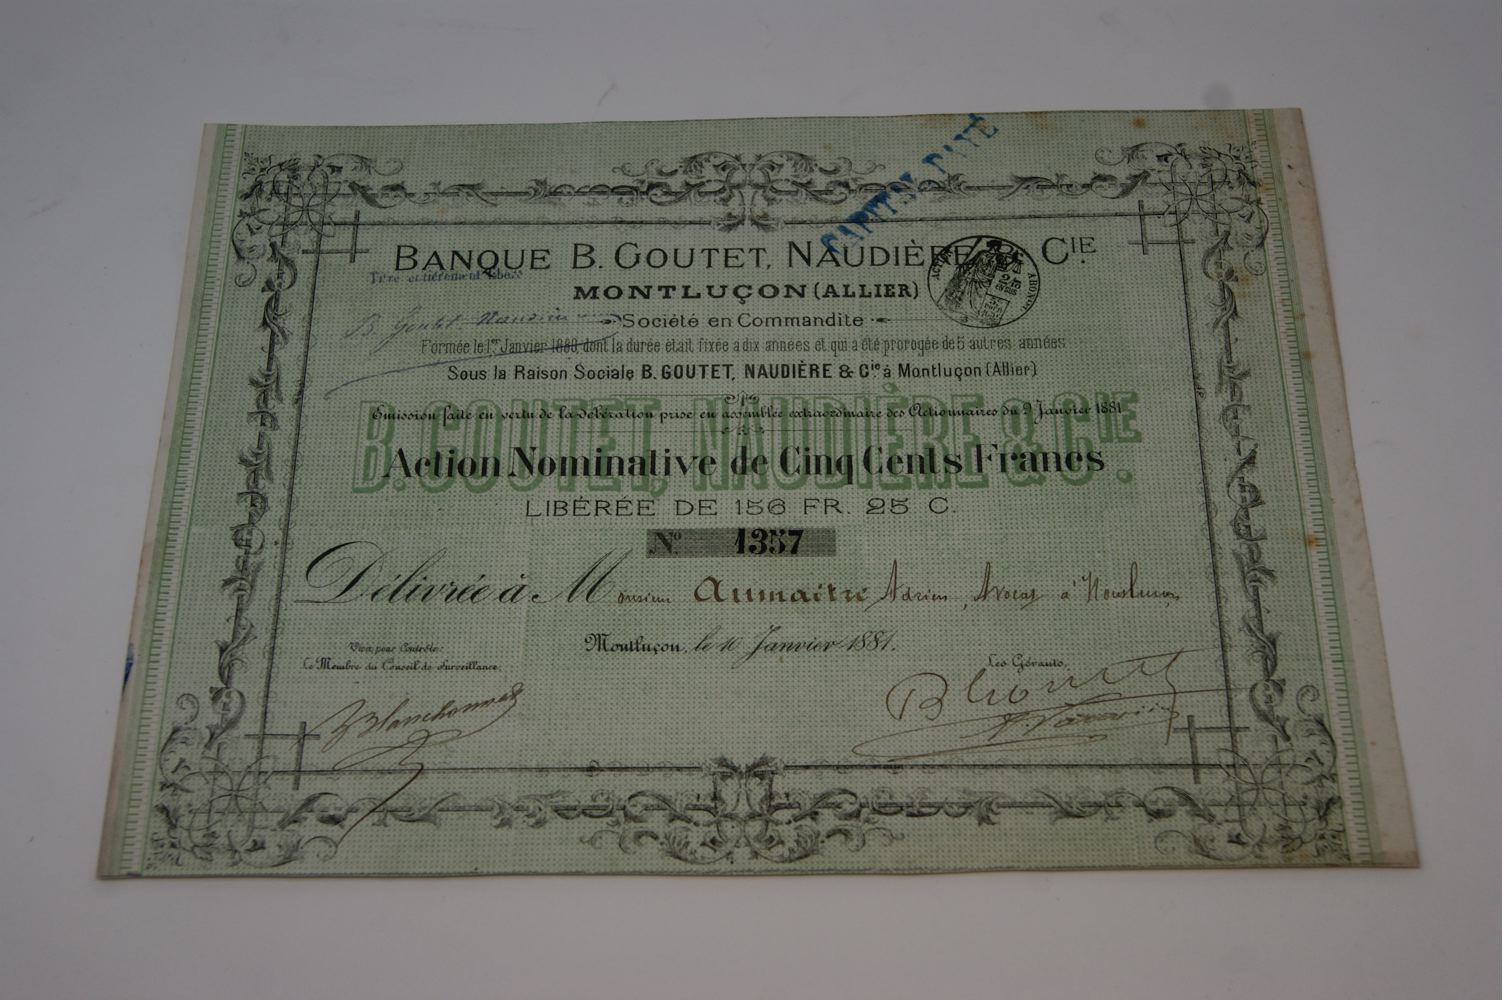 CAPITAL PAYÉ
BANQUE B. GOUTET, NAUDIÈRE & CIE
Titre entièrement libéré
MONTLUÇON (ALLIER)
Société en Commandite
B. Goutet, Naudière
Formée le 1er Janvier 1880, dont la durée était fixée a dix années et qui a été prorogée de 5 autres années
Sous la Raison Sociale B. GOUTET, NAUDIÈRE & Cie à Montluçon (Allier)
Emission faite en vertu de la délibération prise en assemblée extraordinaire des Actionnaires du 9 Janvier 1881
B. GOUTET, NAUDIÈRE & CIE.
Action Nominative de Cinq Cents Francs
LIBÉRÉE DE 156 FR. 25 C.
No. 1357
Délivrée à Monsieur Aumaitre Adrien, Avocat à Montluçon
Montluçon, le 10 Janvier 1881.
Visa pour Contrôle:
Le Membre du Conseil de Surveillance,
Les Gérants,
B Goutet